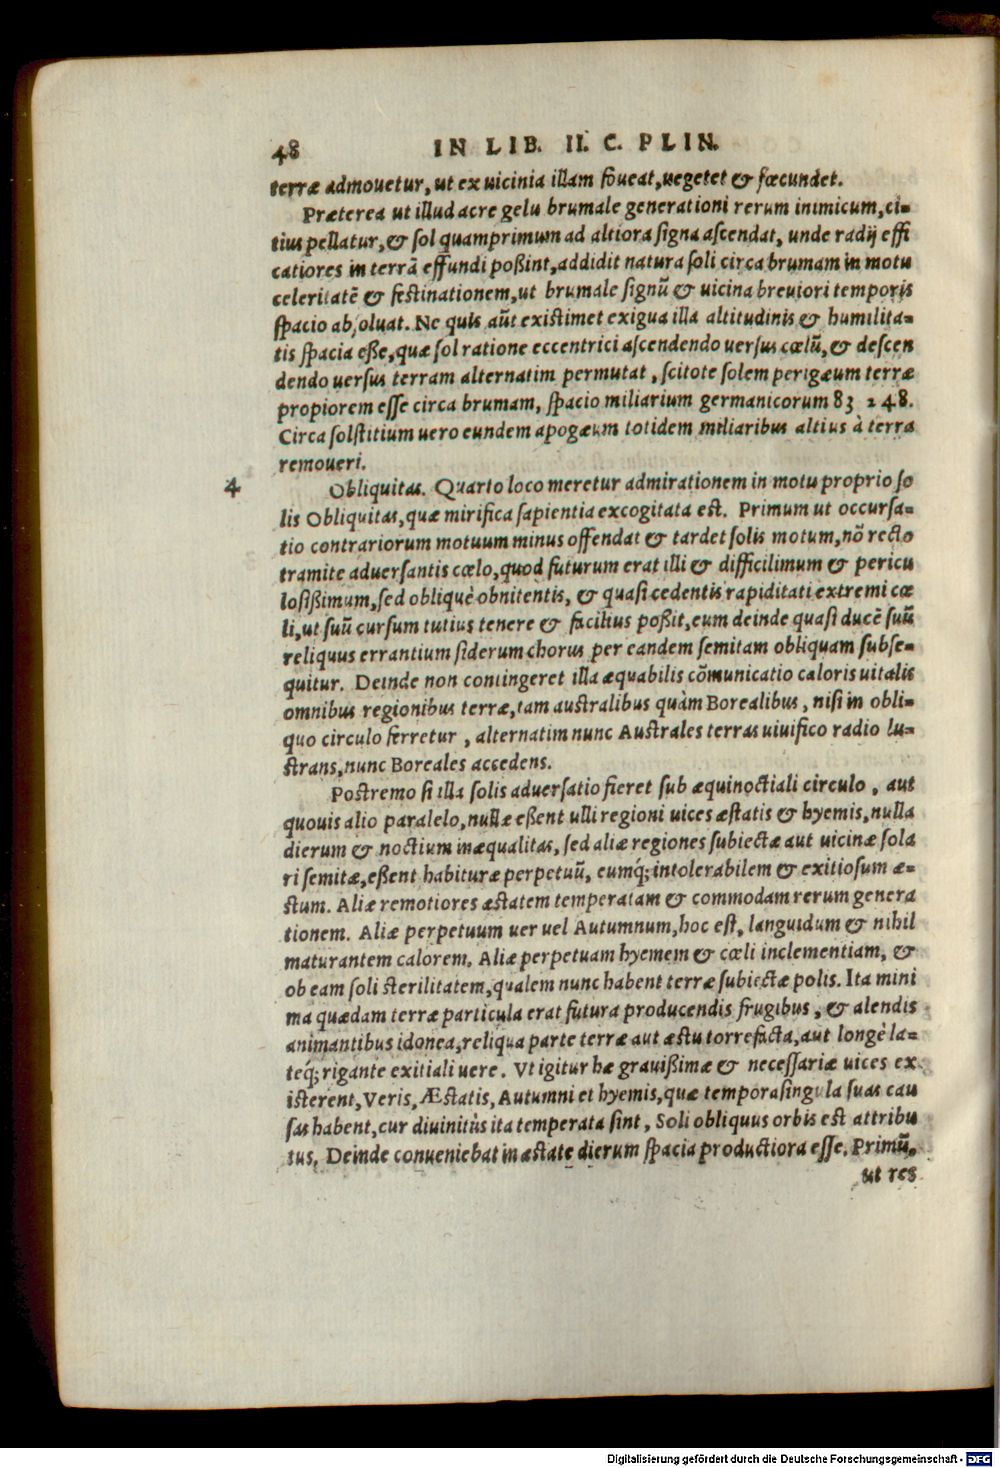 48 IN LIB. II. C. PLIN.
terræ admouetur, ut ex uicinia illam foueat, uegetet & fœcundet.
Præterea ut illud acre gelu brumale generationi rerum inimicum, ci-
tius pellatur, & sol quamprimum ad altiora signa ascendat, unde radij effi
catiores in terrā effundi poßint, addidit natura soli circa brumam in motu
celeritatē & festinationem, ut brumale signū & uicina breuiori temporis
spacio absoluat. Ne quis aūt existimet exigua illa altitudinis & humilita-
tis spacia eße, quæ sol ratione eccentrici ascendendo uersus cœlū, & descen
dendo uersus terram alternatim permutat, scitote solem perigæum terræ
propiorem esse circa brumam, spacio miliarium germanicorum 83248.
Circa solstitium uero eundem apogæum totidem miliaribus altius à terra
remoueri.
4 Obliquitas. Quarto loco meretur admirationem in motu proprio so
lis Obliquitas, quæ mirifica sapientia excogitata est. Primum ut occursa-
tio contrariorum motuum minus offendat & tardet solis motum, nō recto
tramite aduersantis cœlo, quod futurum erat illi & difficilimum & pericu
losißimum, sed obliquè obnitentis, & quasi cedentis rapiditati extremi cœ
li, ut suū cursum tutius tenere & facilius poßit, eum deinde quasi ducē suū
reliquus errantium siderum chorus per eandem semitam obliquam subse-
quitur. Deinde non contingeret illa æquabilis cōmunicatio caloris uitalis
omnibus regionibus terræ, tam australibus quàm Borealibus, nisi in obli-
quo circulo ferretur, alternatim nunc Australes terras uiuifico radio lu-
strans, nunc Boreales accedens.
Postremo si illa solis aduersatio fieret sub æquinoctiali circulo, aut
quouis alio paralelo, nullæ eßent ulli regioni uices æstatis & hyemis, nulla
dierum & noctium inæqualitas, sed aliæ regiones subiectæ aut uicinæ sola
ri semitæ, eßent habituræ perpetuū, eumq́; intolerabilem & exitiosum æ-
stum. Aliæ remotiores æstatem temperatam & commodam rerum genera
tionem. Aliæ perpetuum uer uel Autumnum, hoc est, languidum & nihil
maturantem calorem. Aliæ perpetuam hyemem & cœli inclementiam, &
ob eam soli sterilitatem, qualem nunc habent terræ subiectæ polis. Ita mini
ma quædam terræ particula erat futura producendis frugibus, & alendis
animantibus idonea, reliqua parte terræ aut æstu torrefacta, aut longè la-
teq́; rigante exitiali uere. Vt igitur hæ grauißimæ & necessariæ uices ex
isterent, Veris, Æstatis, Autumni et hyemis, quæ tempora singula suas cau
sas habent, cur diuinitùs ita temperata sint, Soli obliquus orbis est attribu
tus. Deinde conueniebat in æstate dierum spacia productiora esse. Primū,
ut res
Digitalisierung gefördert durch die Deutsche Forschungsgemeinschaft - DFG